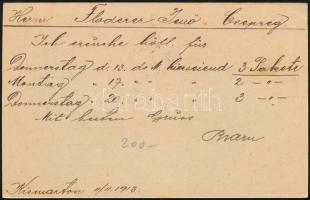 Herrn Floderer Jenő. Csepreg
Ich ersuche höfl. für
Donnerstag d. 13. d. M. hieseiend 3 Pakete
Montag " 17. " " " 2 -"-
Donnerstag " 20. " " " 3 -"-
Mit besten Gruss
200.-
Kismarton 11/II 1913.